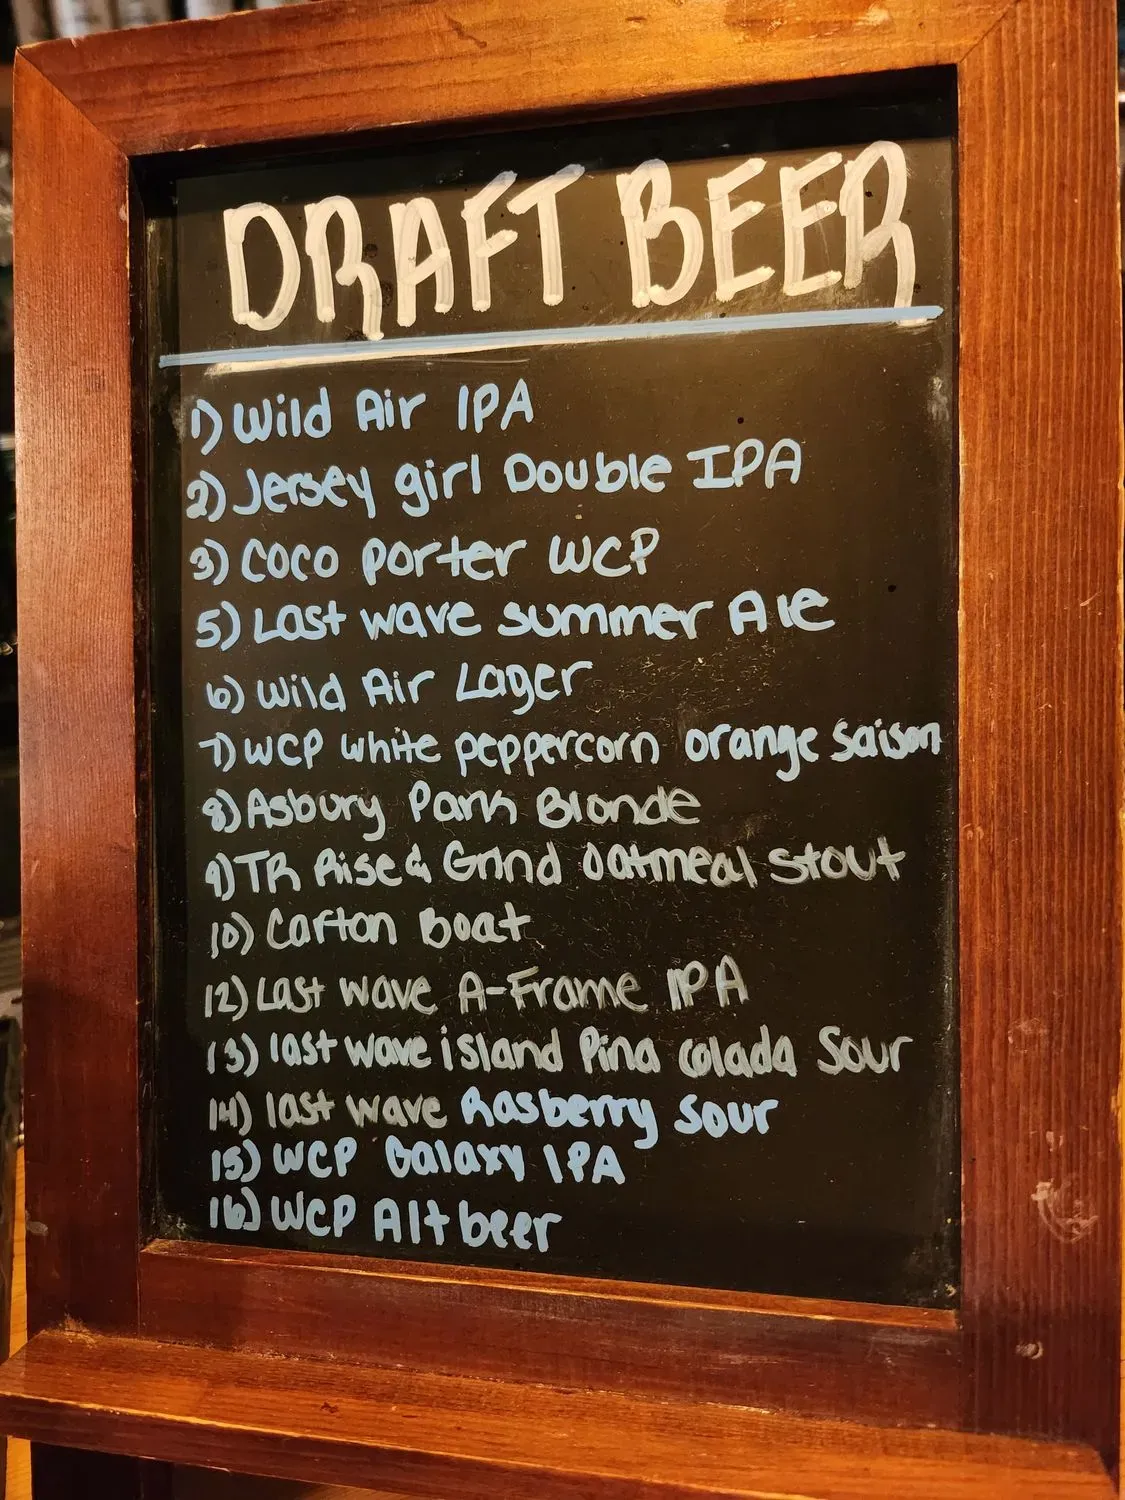 DRAFT BEER
1) Wild Air IPA
2) Jersey girl Double IPA
3) Coco porter WCP
5) Last wave summer Ale
6) Wild Air Lager
7) WCP white peppercorn orange saison
8) Asbury Park Blonde
9) TR Rise & Grind Oatmeal Stout
10) Carton Boat
12) Last wave A-Frame IPA
13) last wave island Pina Colada Sour
14) last wave Rasberry Sour
15) WCP Galaxy IPA
16) WCP Altbeer